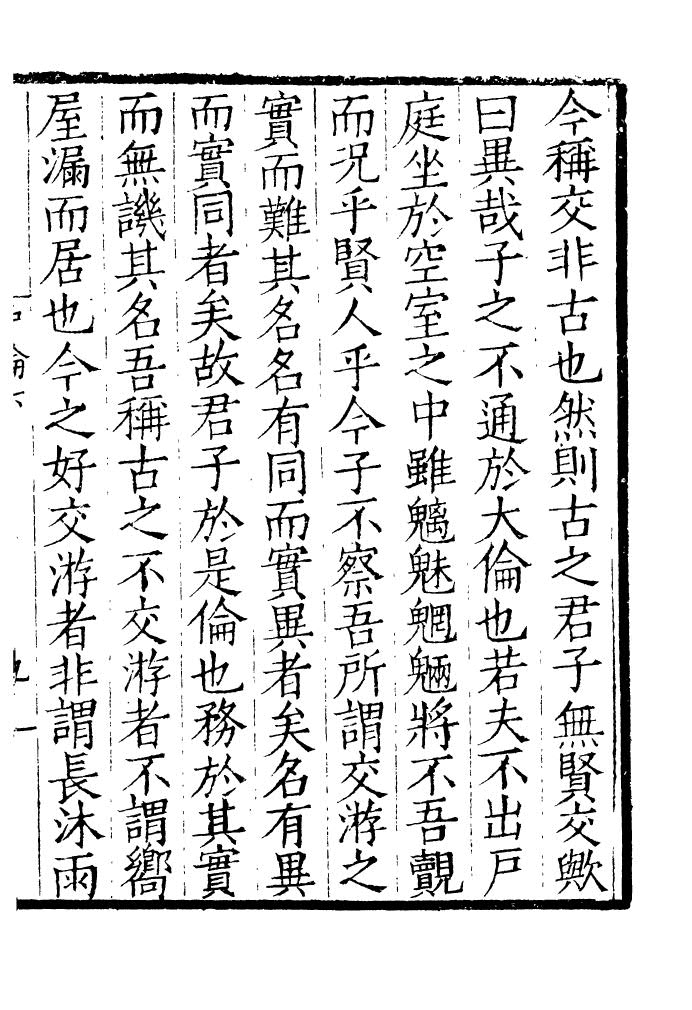 今稱交非古也然則古之君子無賢交歟
曰異哉子之不通於大倫也若夫不出戶
庭坐於空室之中雖魑魅魍魎將不吾覿
而況乎賢人乎今子不察吾所謂交游之
實而難其名名有同而實異者矣名有異
而實同者矣故君子於是倫也務於其實
而無譏其名吾稱古之不交游者不謂嚮
屋漏而居也今之好交游者非謂長沐雨